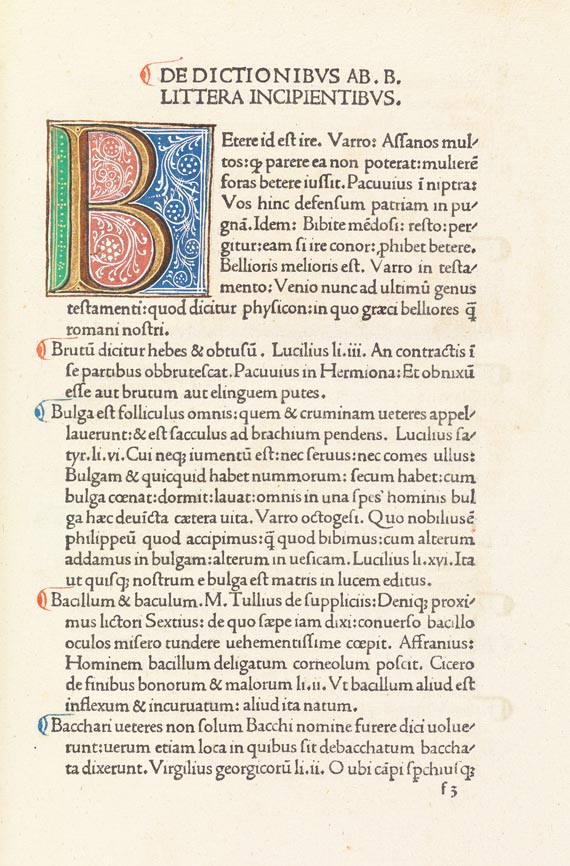 DE DICTIONIBVS AB. B.
LITTERA INCIPIENTIBVS.
BEtere id eſt ire. Varro: Aſſanos mul⸗
tos:ꝙ parere ea non poterat:mulierē
foras betere iuſſit. Pacuuius ī niptra:
Vos hinc defenſum patriam in pu⸗
gnā. Idem: Bibite mēdoſi: reſto:per⸗
gitur:eam ſi ire conor:ꝓhibet betere.
Bellioris melioris eſt. Varro in teſta⸗
mento: Venio nunc ad ultimū genus
teſtamenti:quod dicitur phyſicon:in quo græci belliores q̄
romani noſtri.
Brutū dicitur hebes & obtuſū. Lucilius li.iii. An contractis ī
ſe partibus obbruteſcat. Pacuuius in Hermiona: Et obnixū
eſſe aut brutum aut elinguem putes.
Bulga eſt folliculus omnis:quem & cruminam ueteres appel⸗
lauerunt:& eſt ſacculus ad brachium pendens. Lucilius ſa⸗
tyr.li.vi. Cui neqꝫ iumentū eſt:nec ſeruus:nec comes ullus:
Bulgam & quicquid habet nummorum: ſecum habet:cum
bulga cœnat:dormit:lauat:omnis in una ſpes' hominis bul
ga hæc deuīcta cætera uita. Varro octogeſi. Quo nobiliusē
philippeū quod accipimus:q̄ quod bibimus:cum alterum
addamus in bulgam:alterum in ueſicam. Lucilius li.xvi. Ita
ut quiſqꝫ noſtrum e bulga eſt matris in lucem editus.
Bacillum & baculum. M. Tullius de ſuppliciis: Deniqꝫ proxi⸗
mus lictori Sextius: de quo ſæpe iam dixi:conuerſo bacillo
oculos miſero tundere uehementiſſime cœpit. Affranius:
Hominem bacillum deligatum corneolum poſcit. Cicero
de finibus bonorum & malorum li.ii. Vt bacillum aliud eſt
inflexum & incuruatum: aliud ita natum.
Bacchari ueteres non ſolum Bacchi nomine furere dici uolue⸗
runt:uerum etiam loca in quibus ſit debacchatum baccha⸗
ta dixerunt. Virgilius georgicorū li.ii. O ubi cāpi ſpchiuſqꝫ
f3